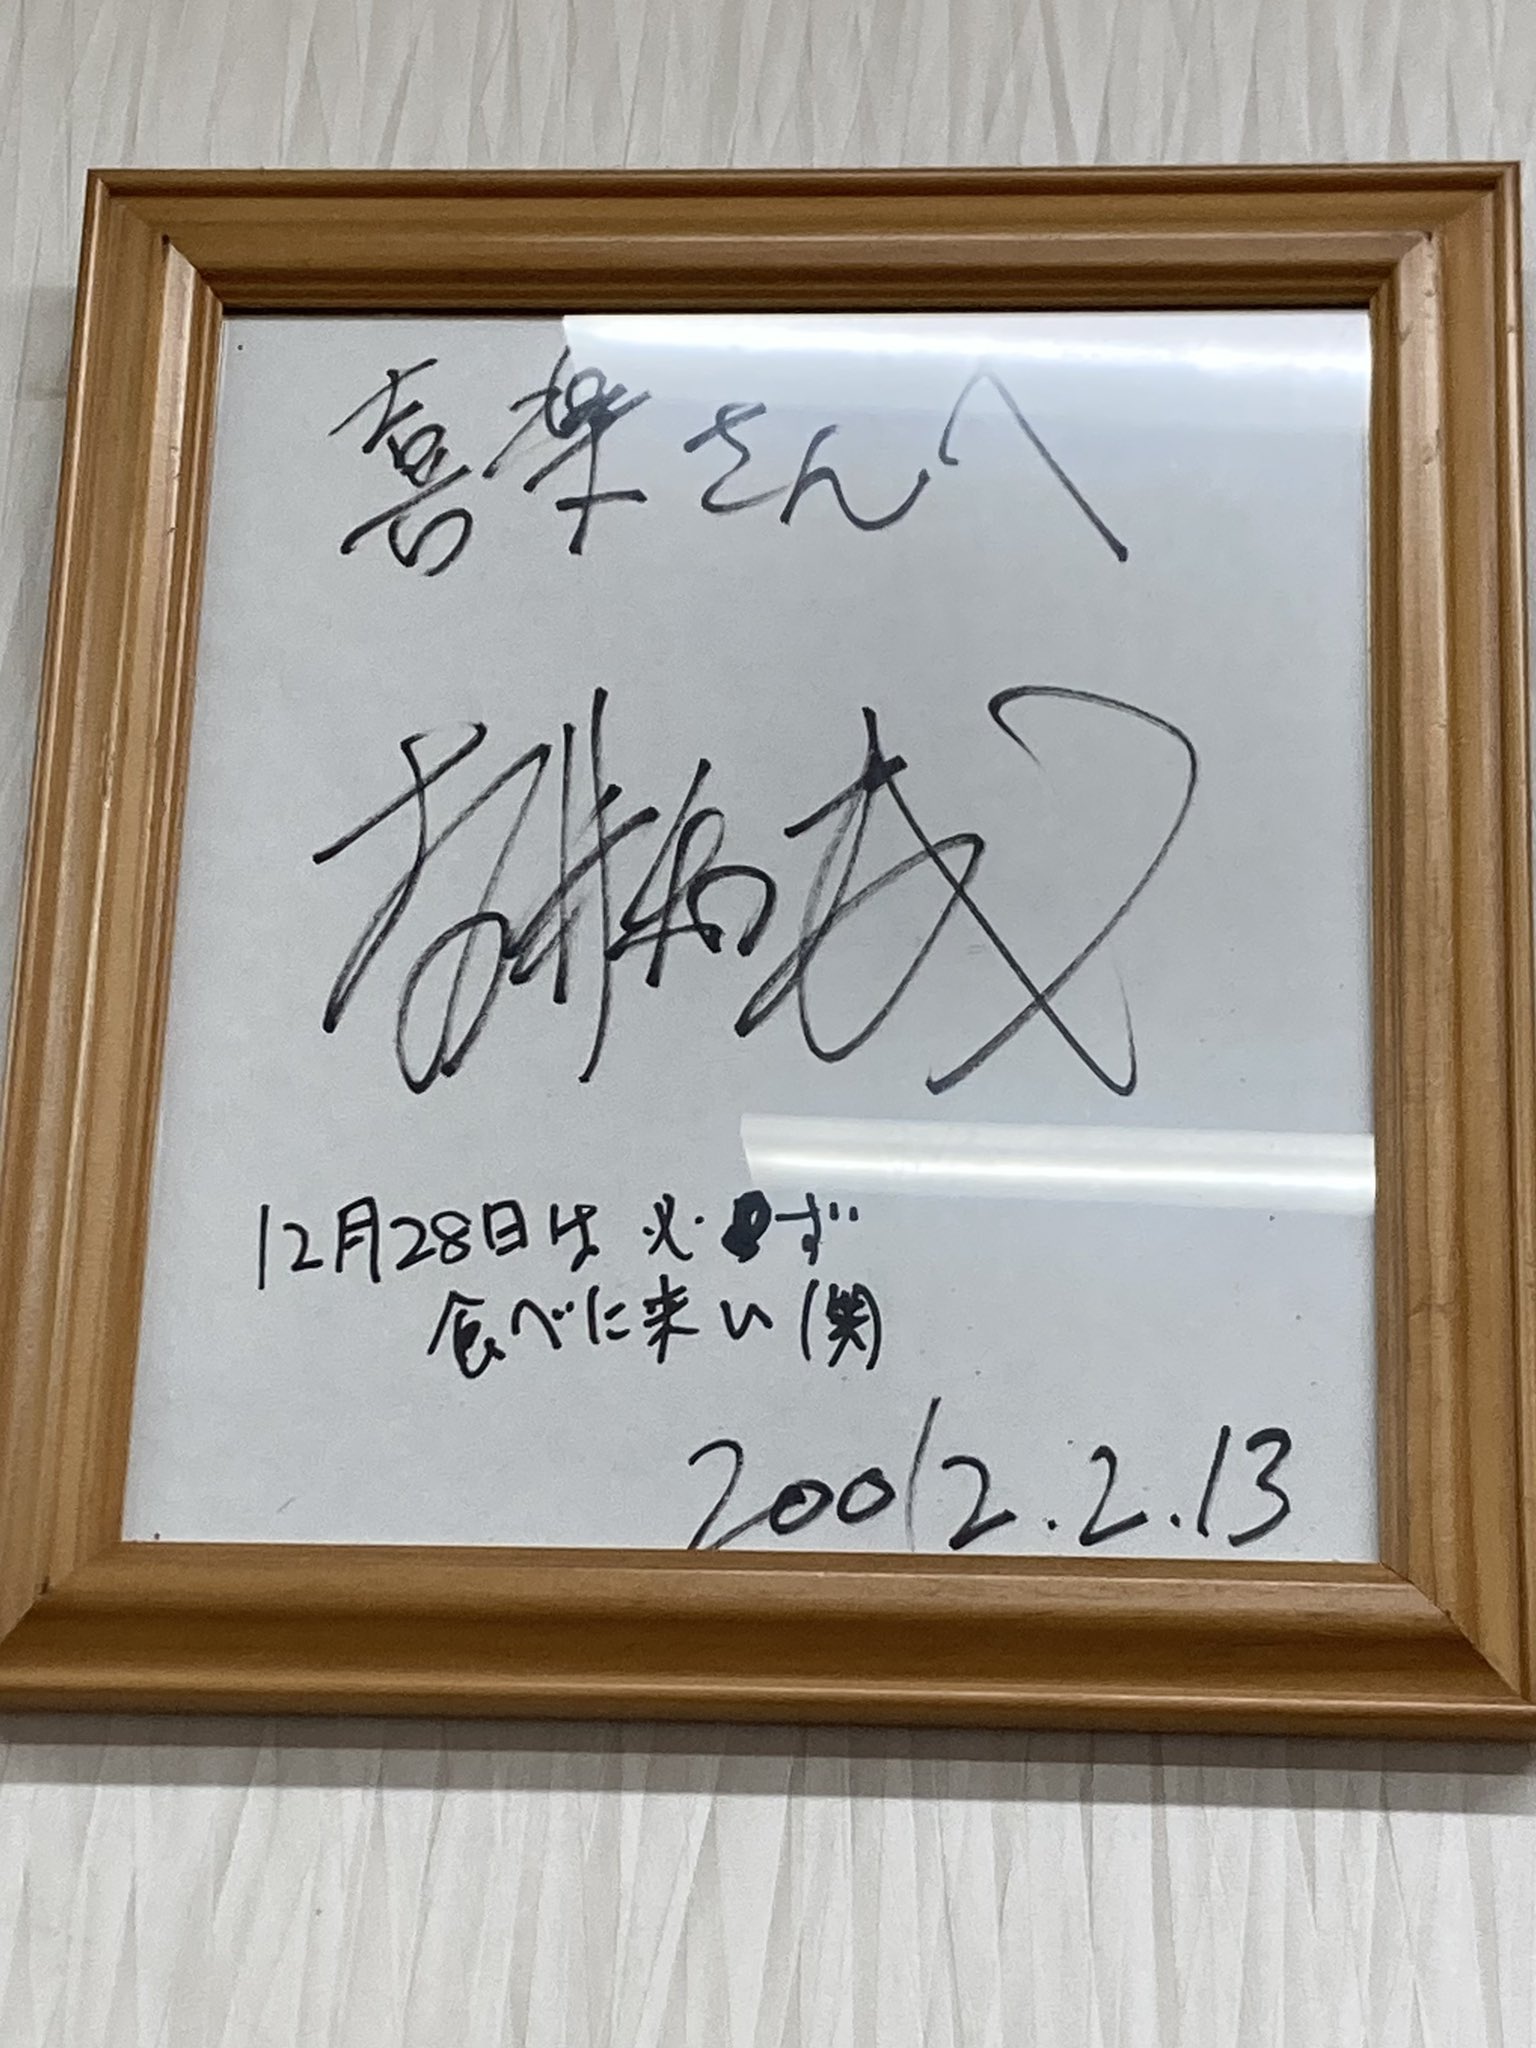 喜楽さんへ
12月28日は必ず
食べに来い(笑)
20012.2.13